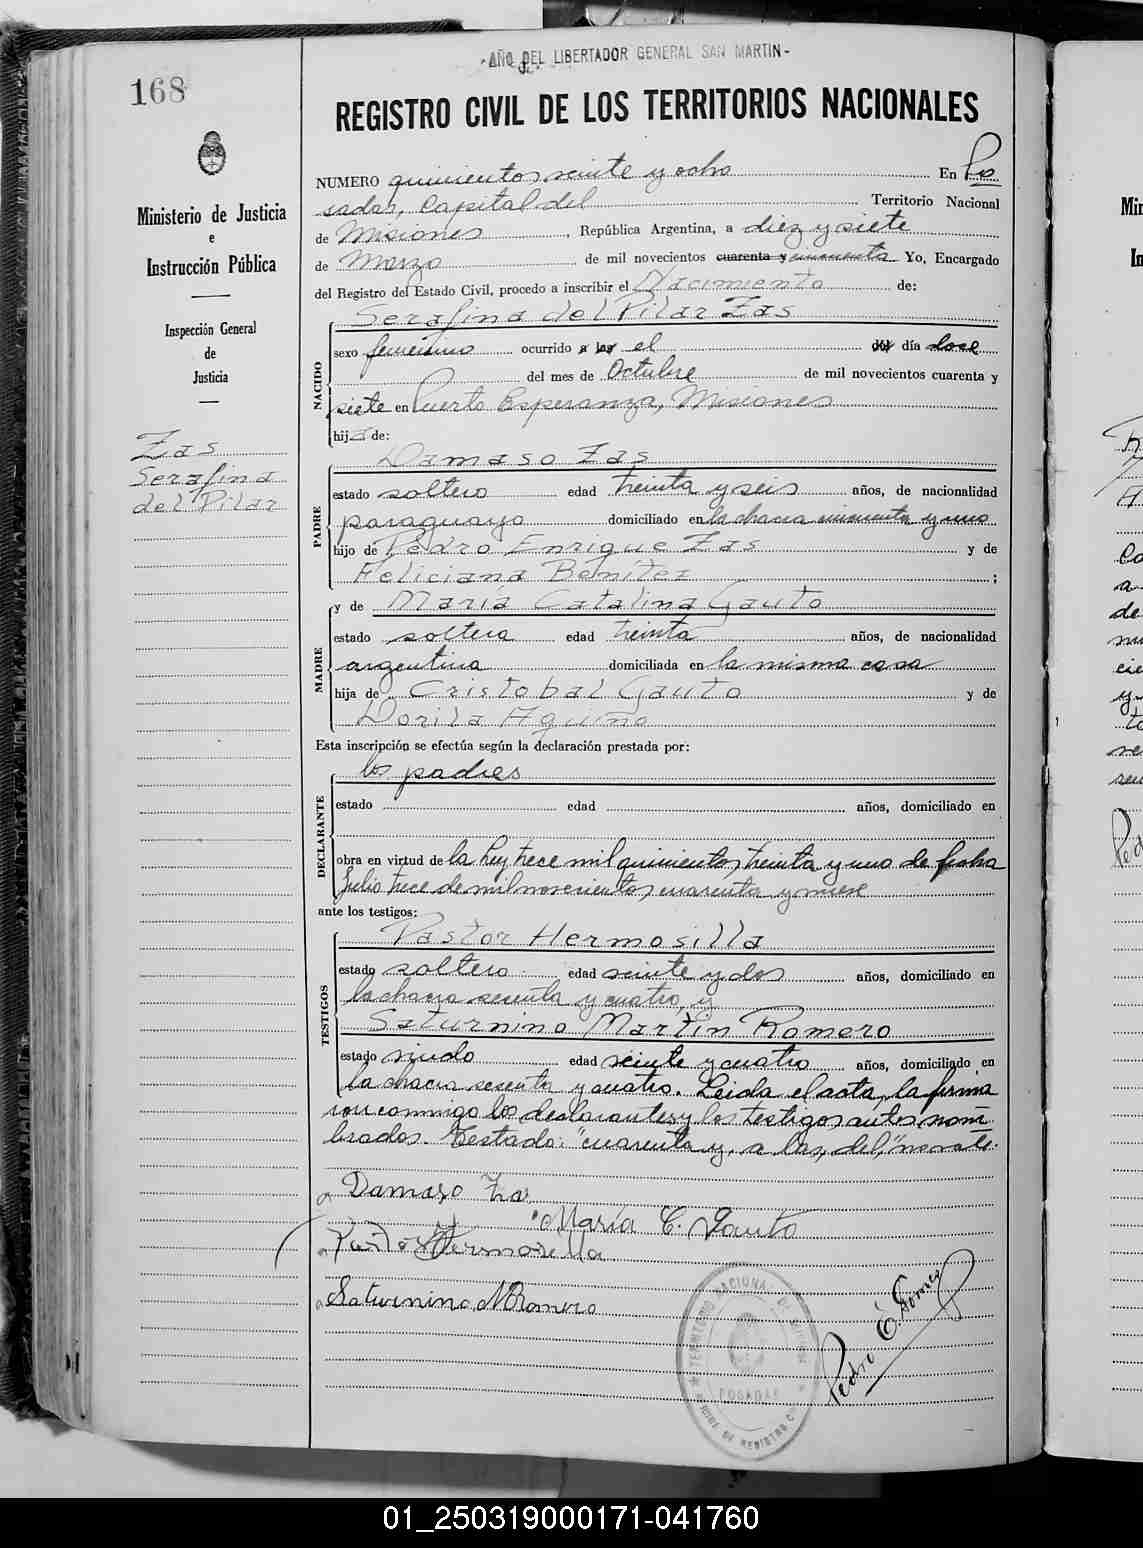 -AÑO DEL LIBERTADOR GENERAL SAN MARTIN-
168
REGISTRO CIVIL DE LOS TERRITORIOS NACIONALES
Ministerio de Justicia
e
Instrucción Pública
Inspección General
de
Justicia
Zas
Serafina
del Pilar
NUMERO quinientos veinte y ocho En Po
sadas, Capital del Territorio Nacional
de Misiones, República Argentina, a diez y siete
de Marzo de mil novecientos cuarenta y cincuenta Yo, Encargado
del Registro del Estado Civil, procedo a inscribir el Nacimiento de:
NACIDO
Serafina del Pilar Zas
sexo femenino ocurrido a las el del día doce
del mes de Octubre de mil novecientos cuarenta y
siete en Puerto Esperanza, Misiones
hija de:
PADRE
Damaso Zas
estado soltero edad treinta y seis años, de nacionalidad
paraguayo domiciliado en la chacra cincuenta y uno
hijo de Pedro Enrique Zas y de
Feliciana Benítez ;
MADRE
y de María Catalina Gauto
estado soltera edad treinta años, de nacionalidad
argentina domiciliada en la misma casa
hija de Cristobal Gauto y de
Dorila Aguino
Esta inscripción se efectúa según la declaración prestada por:
DECLARANTE
los padres
estado edad años, domiciliado en
obra en virtud de la ley trece mil quinientos treinta y uno de fecha
Julio trece de mil novecientos cuarenta y nueve
ante los testigos:
TESTIGOS
Pastor Hermosilla
estado soltero edad veinte y dos años, domiciliado en
la chacra sesenta y cuatro, y
Saturnino Martin Romero
estado viudo edad veinte y cuatro años, domiciliado en
la chacra sesenta y cuatro. Leida el acta, la firma
ron conmigo los declarantes y los testigos antes nom
brados. Testado: "cuarenta y, a las, del," no vale.
Damaso Zas
María C. Gauto
Pastor Hermosilla
Saturnino M Romero
Pedro E. Gomez
TERRITORIO NACIONAL DE MISIONES
POSADAS
OFICINA DE REGISTRO C
01_250319000171-041760